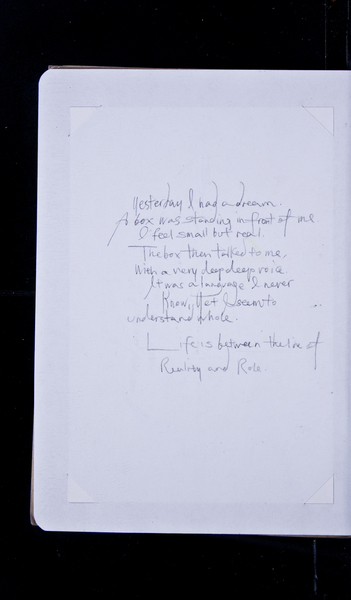 Yesterday I had a dream.
A box was standing in front of me
I feel small but real.
The box then talked to me,
With a very deep deep voice
It was a language I never
Know, Yet I seem to
understand whole.
Life is between the of
Reality and Role.